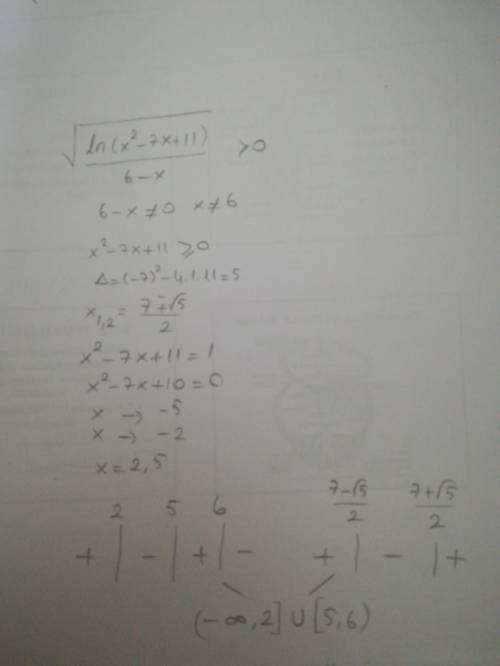 √(ln(x²-7x+11)/(6-x)) >0
6-x≠0 x≠6
x²-7x+11 ≥0
Δ=(-7)²-4.1.11=5
x₁,₂= (7∓√5)/2
x²-7x+11=1
x²-7x+10=0
x → -5
x → -2
x=2,5
2 5 6 (7-√5)/2 (7+√5)/2
+ | - | + | - + | - | +
(-∞,2] ∪ [5,6)